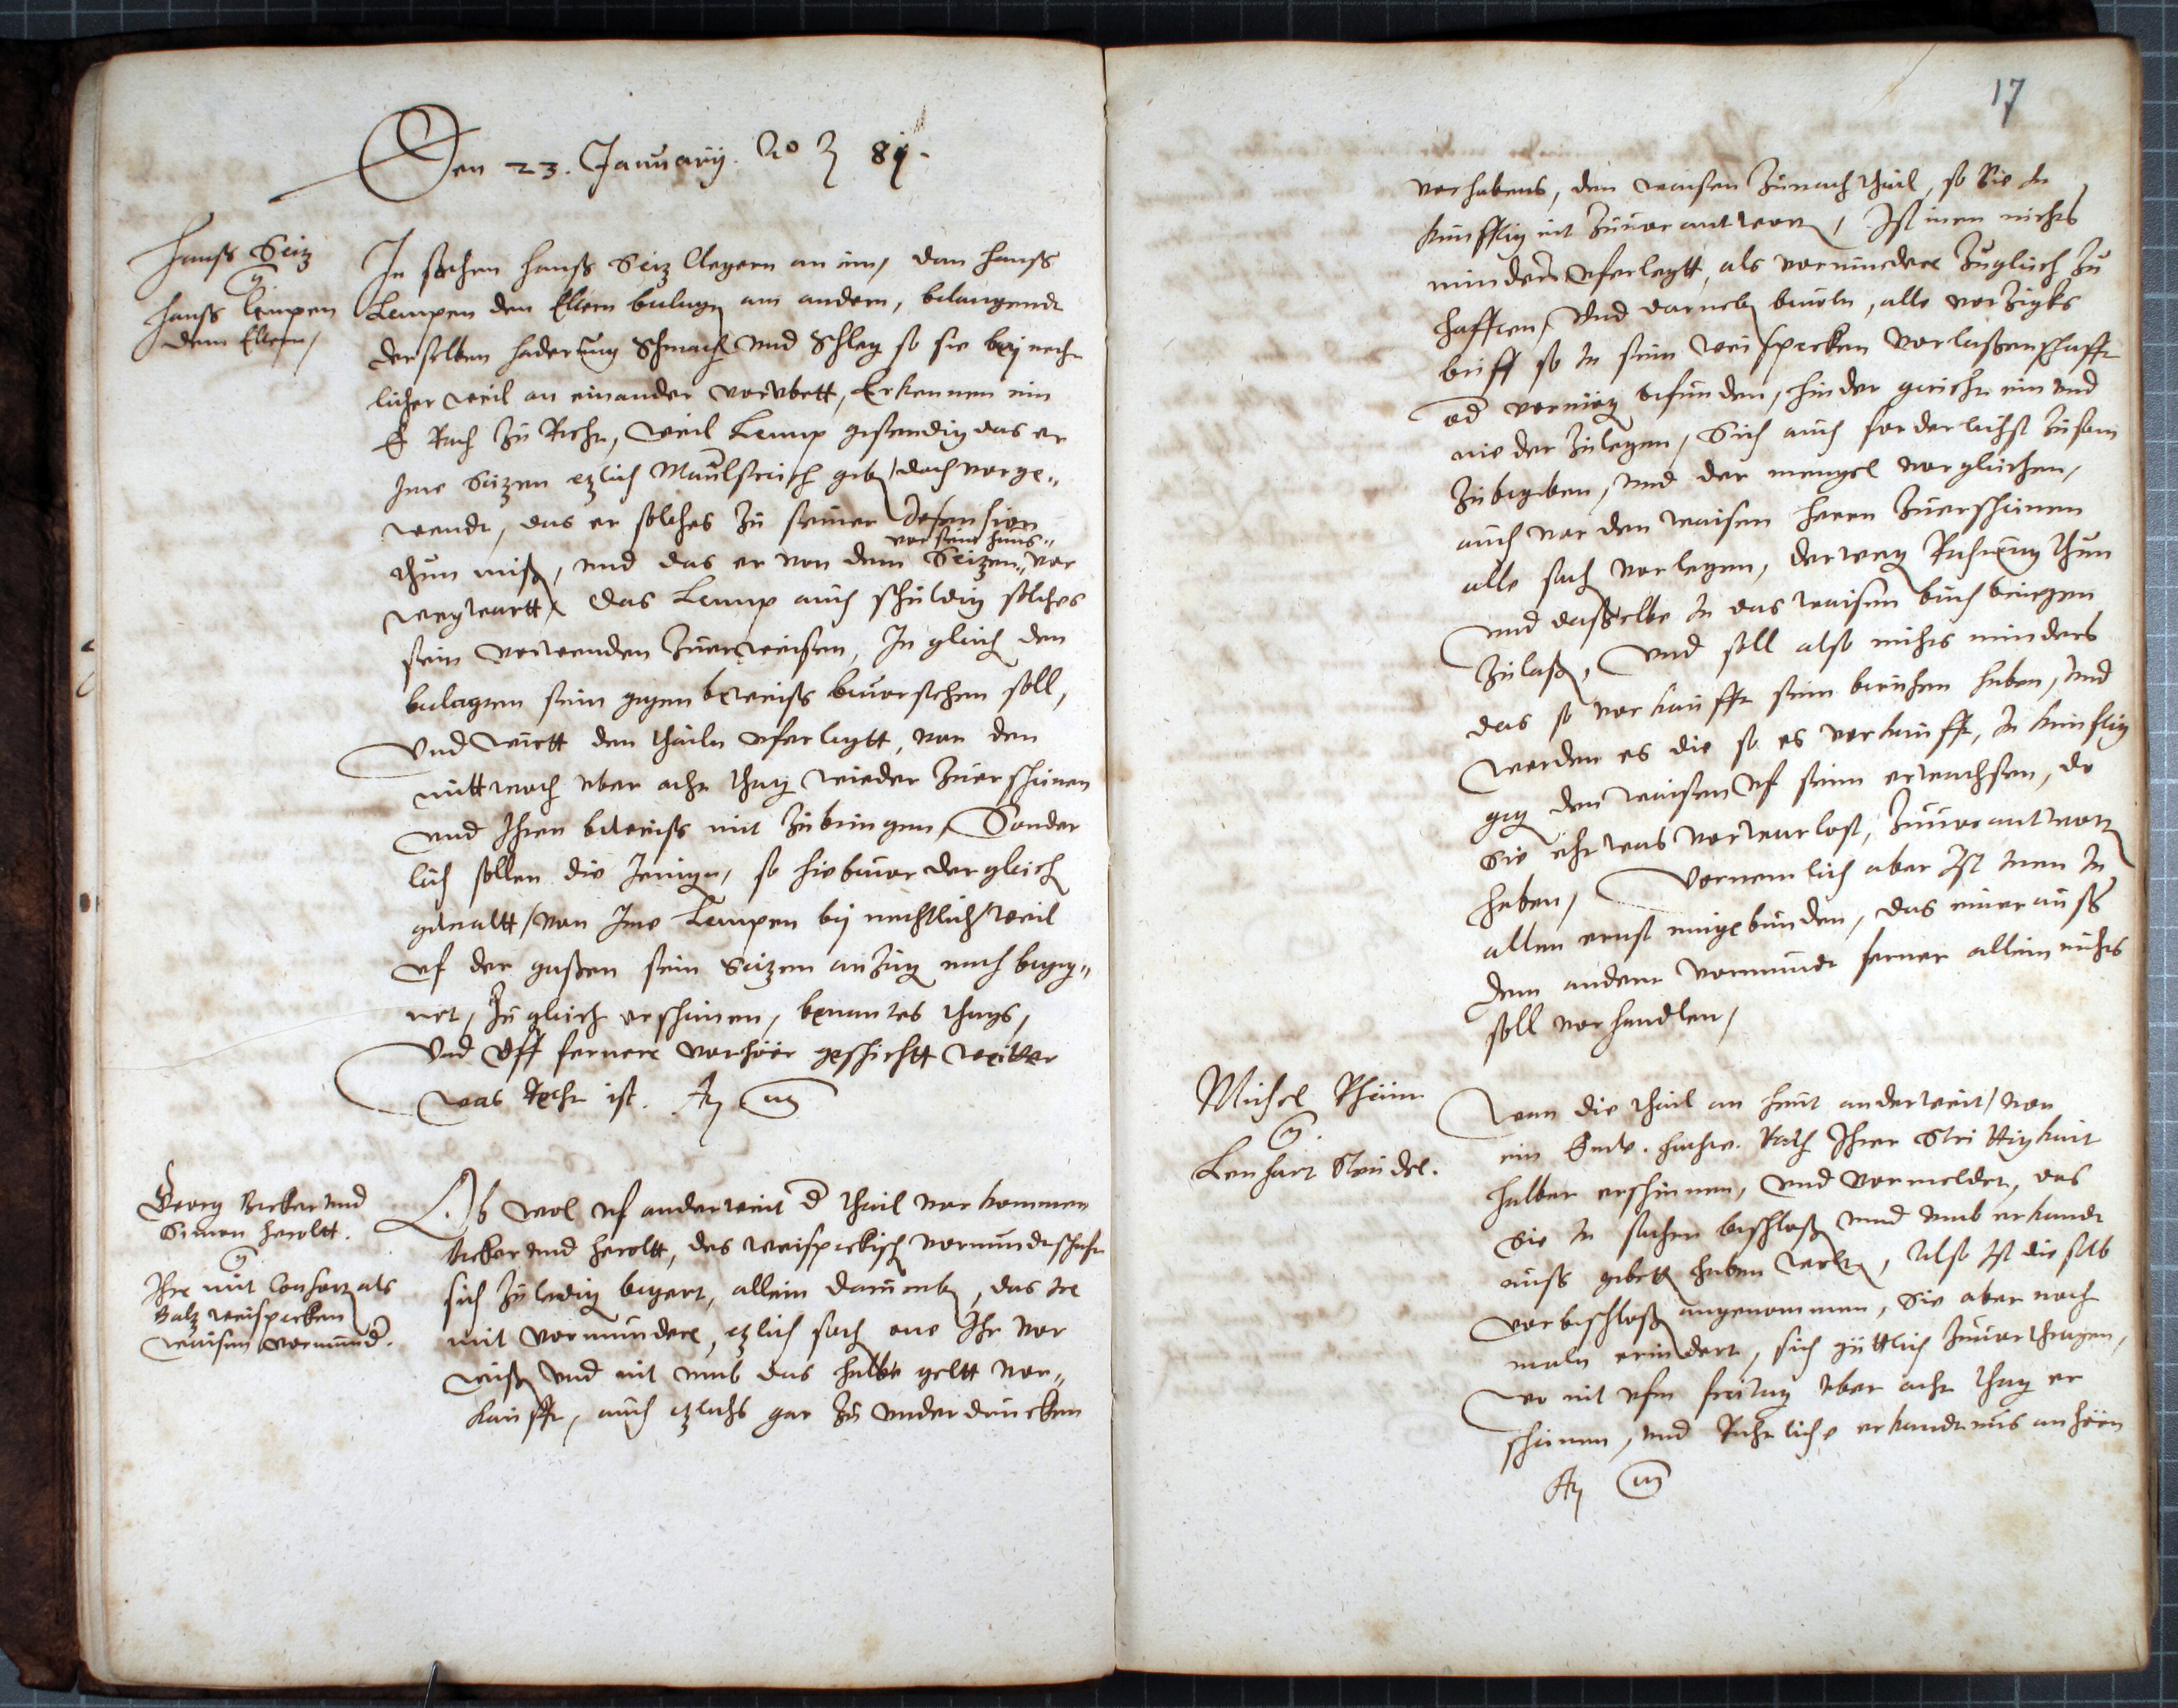 Den 23. January. Ao 2 81.
Hanß Seiz
Hanß Lempen
dem Eltern,
In sachen Hanß Seiz Clegern an im, dan Hanß
Lempen den Eltern beclagten am andern, belangendt
derselben haderung Schmach und Schleg so sie bey necht-
licher weil an einander verübett, Erkennen ein
E Rath zu Recht, weil Lemp gestendig das er
Ime Seizen ezlich Maulstreich geben, doch vorge-
wendt, das er solches zu seiner defension
thun mießen, und das er von dem Seizen vor
vor seim haus-
wegwartt, das Lemp auch schuldig solches
sein vorwenden zuerweisen, In gleich dem
beclagten sein gegenbeweiß bevorstehen soll,
Und wirtt den theiln uferlegtt, von den
mittwoch uber acht thag wieder zuerscheinen
und Ihren beweiß mit zubringen, Sonder
lich sollen die Jenigen, so hiebevor der gleich
gewaltt, von Ime Lempen bey nechtlicher weil
uf der gaßen sein Seizen anzeig nach begeg-
net, zugleich erscheinen, benantes thags,
Und uff fernere verhöer geschichtt weitter
was Recht ist.
Georg Becker und
Simon Heroltt.
Ihre mit Consorten als
Balz Weispecken
waisen vormünd.
Ob wol uf anderweit d theil vorkommen
Becker und Heroltt, des Weispeckisch vormundtschaft
sich zu ledig begert, allein darumb, das Ire
mit vormündere, ezlich sach one Ihr vor
wißen und nit umb das halbe geltt vor-
kaufft, auch ezlichs gar zu underdrucken
17
vorhabens, den waisen zu nachtheil, so Sie In
kunfftig nit zuverantworten, Ist inen nichts
minders uferlegtt, als vormündere zugleich zu
hafften, Und darneben bevoln, alle verzigks
brieff so In seim Weispecken verlaßenschafft
od vermög befunden, hinder gericht ein und
nieder zulegen, Sich auch forderlichst zusam
zubegeben, und der mengel vergleichen,
auch vor den waisen herrn zuerscheinen
alle sach vorlegen, derwegen Rechnung thun
und dasselbe In das waisen buch bringen
zulaßen, Und soll also nichts minders
das so verkaufft sein beruhen haben, und
werden es die so es verkaufft, In kunftig
gegen den waisen uf sein erwachsen, do
Sie icht was verwarlost, zuverantworten
haben, Vornemlich aber Ist Inen In
allen ernst eingebunden, das einer auß
dem andern vormundt ferner allein nichts
soll verhandlen,
Michel Rhein
Lenhart Steudel.
Wan die theil an heut anderweit, von
ein Erw. hochw. Rath Ihrer Strittigkeit
halber erschienen, und vermeldet, das
Sie In sachen beschloßen und umb erkandt
nuß gebetten haben wolten, Also Ist dieselb
vor beschloßen angenommen, Sie aber noch
maln erindert, sich güttlich zuverthragen,
wo nit ufm freitag uber acht thag er
scheinen, und Rechtliche erkandtnus anhörn